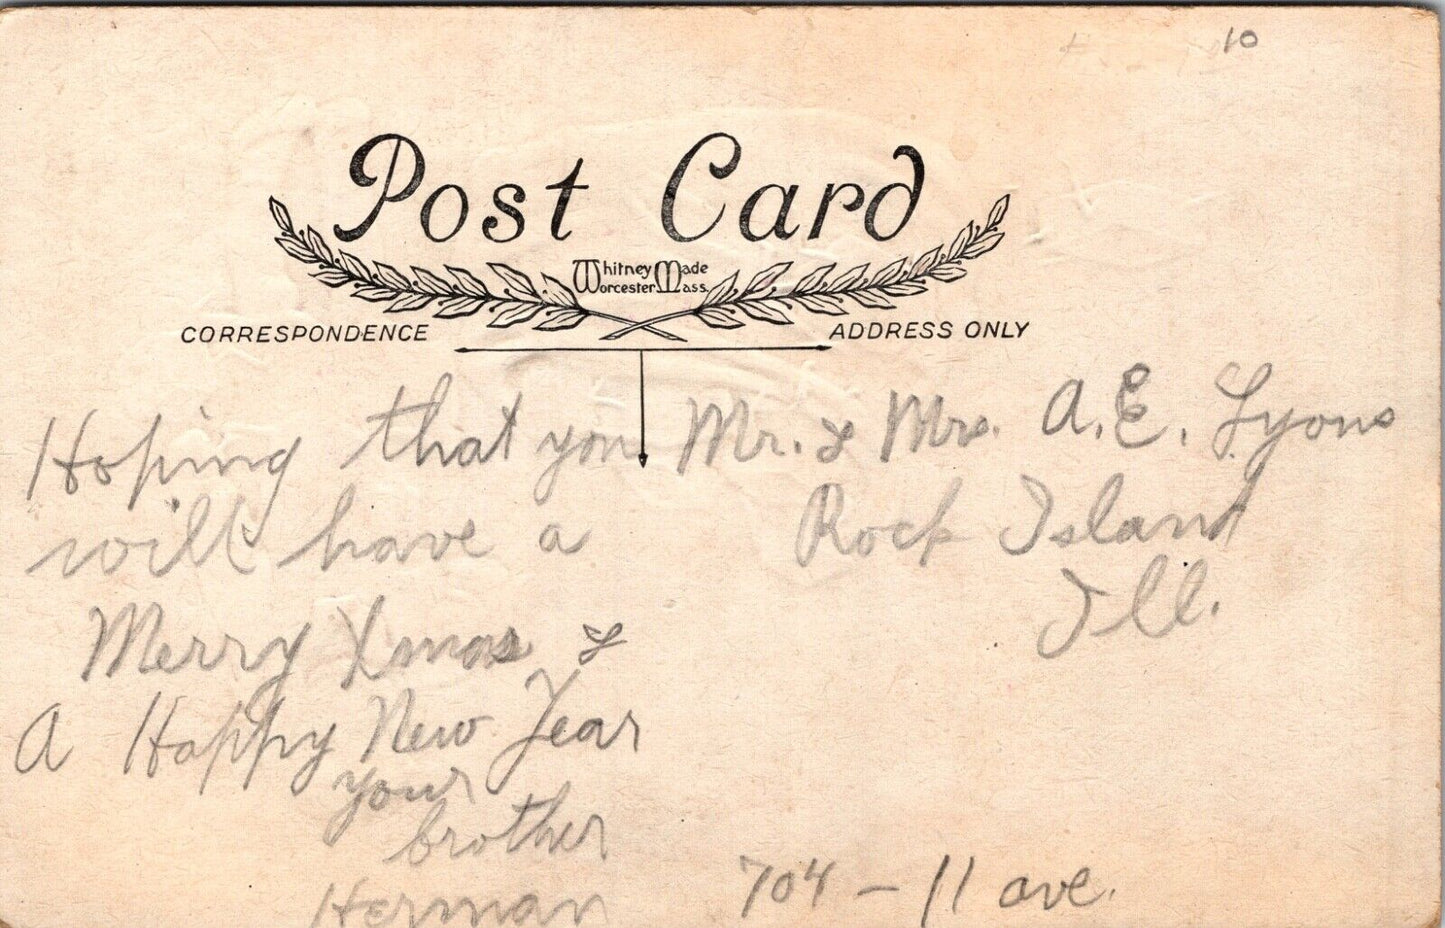 10
Post Card
Whitney Made
Worcester Mass.
CORRESPONDENCE
ADDRESS ONLY
Hoping that you
will have a
Merry Xmas &
A Happy New Year
your
brother
Herman
Mr. & Mrs. A. E. Lyons
Rock Island
Ill.
704 - 11 ave.